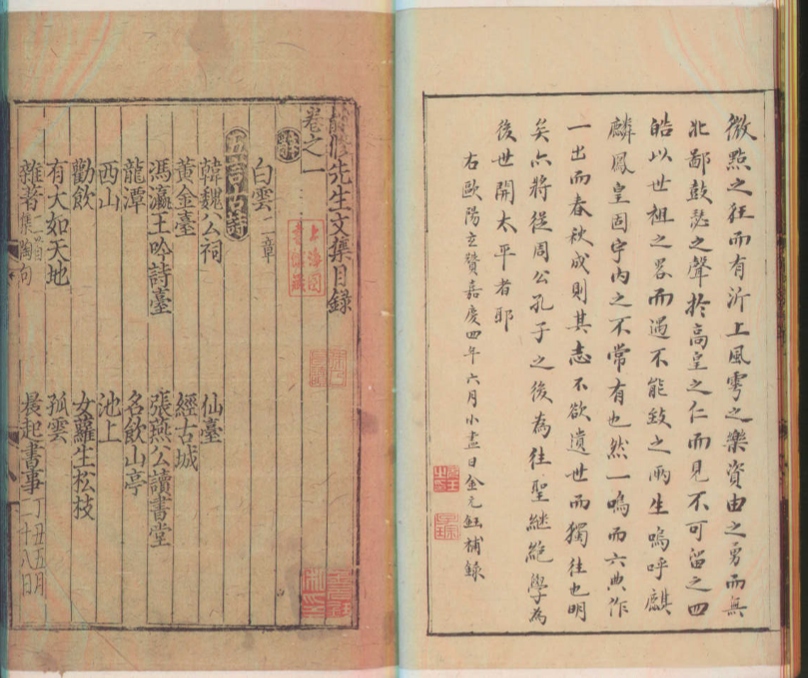 微點之狂而有沂上風雩之樂資由之勇而無
北鄙鼓瑟之聲於高皇之仁而見不可留之四
皓以世祖之畧而遇不能致之兩生嗚呼麒
麟鳳皇固宇內之不常有也然一鳴而六典作
一出而春秋成則其志不欲遺世而獨往也明
矣亦將從周公孔子之後為往聖繼絕學為
後世開太平者耶
右歐陽玄贊嘉慶四年六月小盡日金元鈺補錄
靜修先生文集目錄
卷之一
上海圖書館藏
辭
白雲二章
五言古詩
韓魏公祠 仙臺
黃金臺 經古城
馮瀛王吟詩臺 張燕公讀書堂
龍潭 名飲山亭
西山 池上
勸飲 女蘿生松枝
有大如天地 孤雲
雜著二首集陶句 晨起書事丁丑五月二十八日